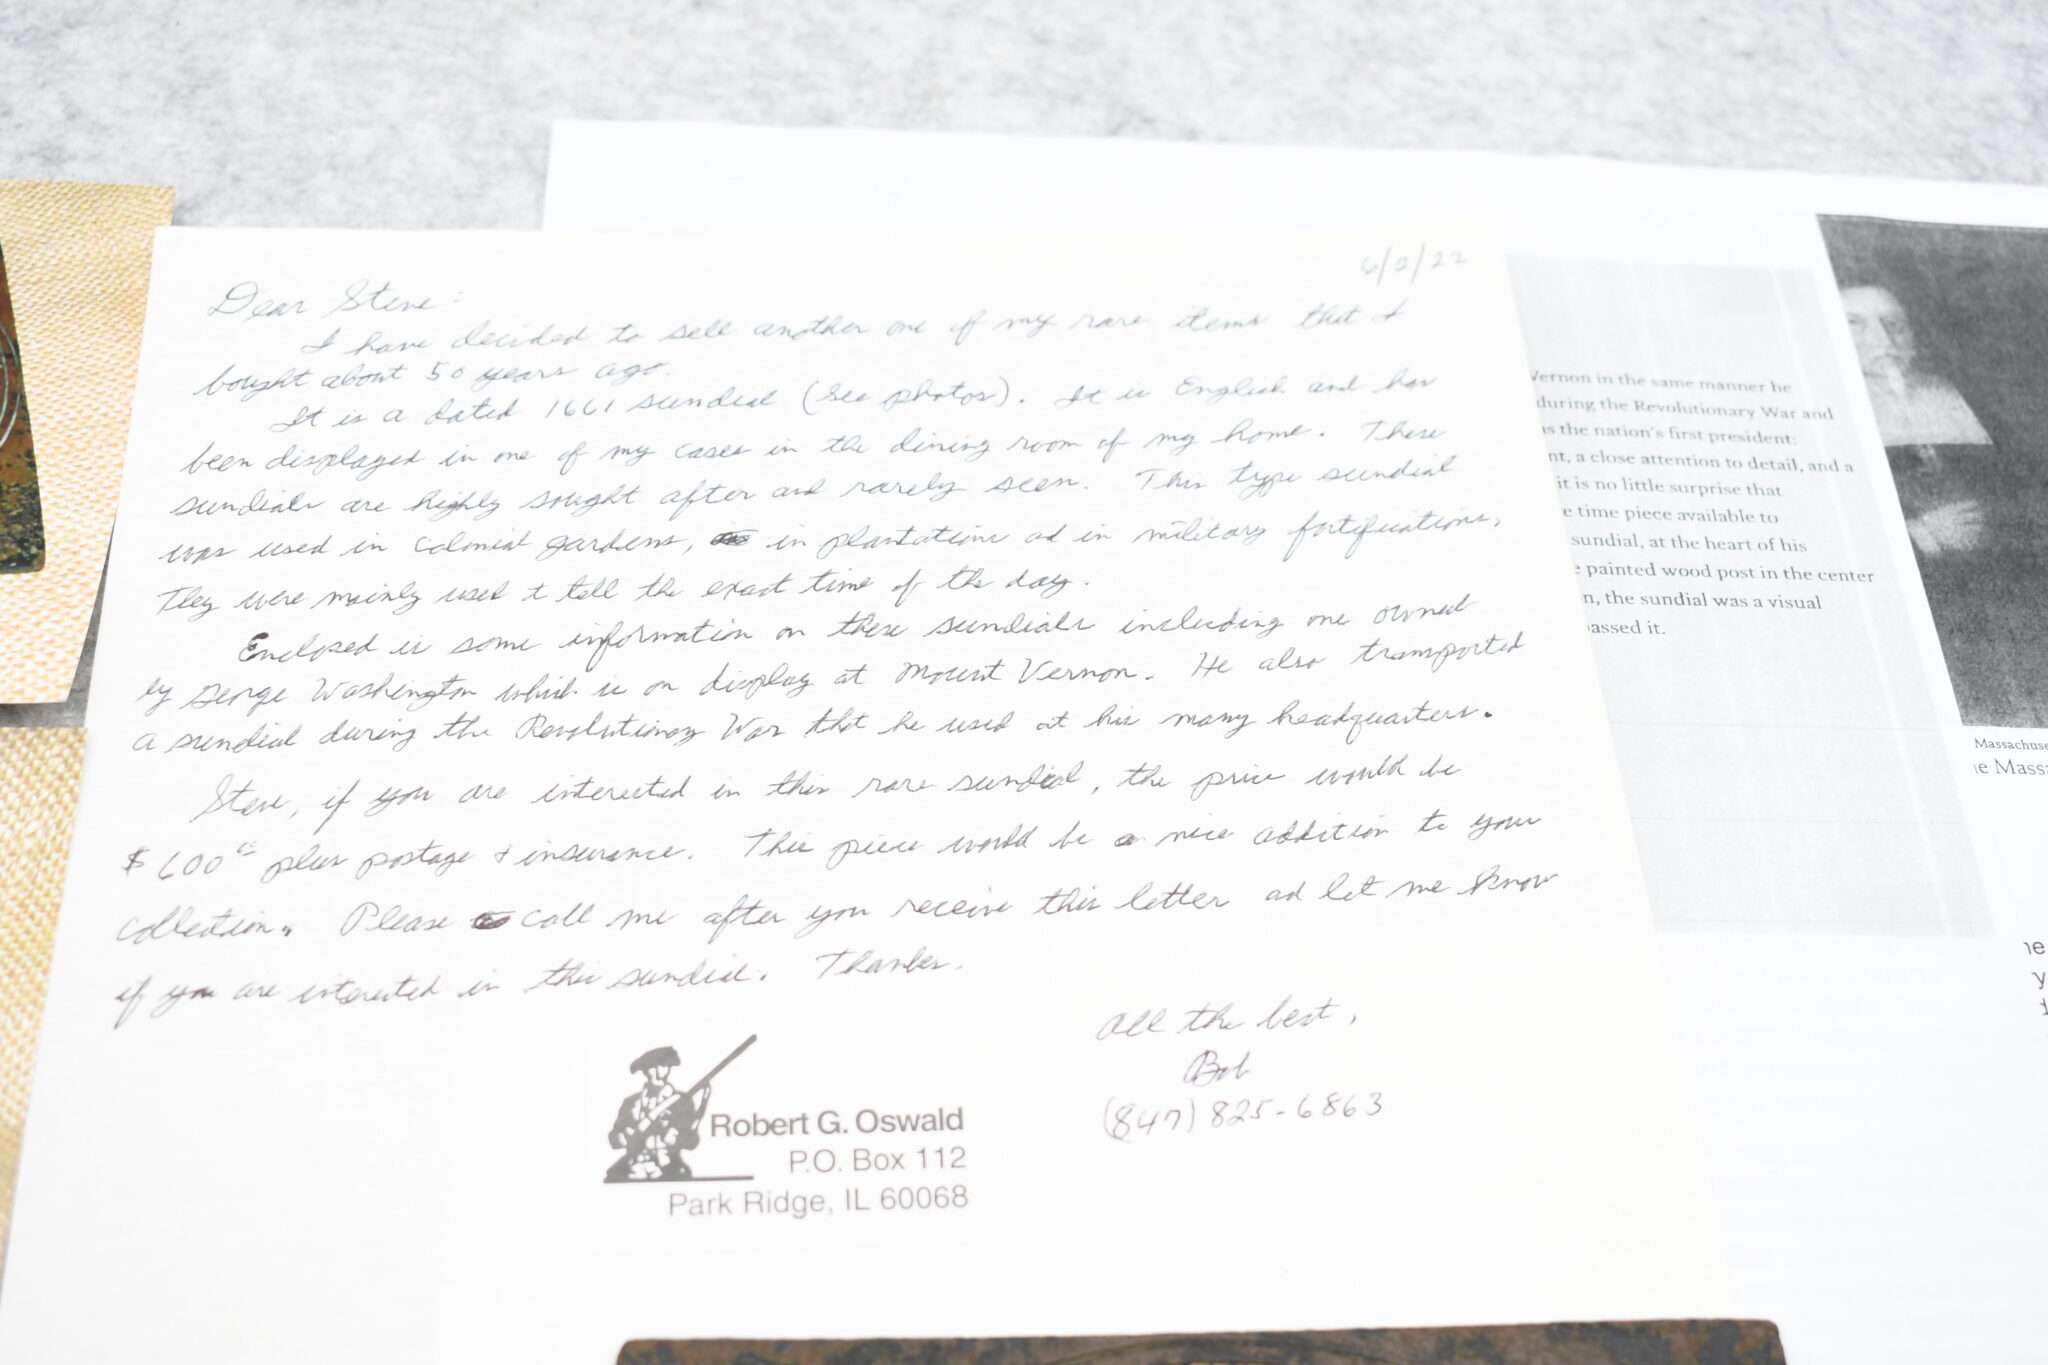 6/2/22
Dear Steve:
I have decided to sell another one of my rare items that I
bought about 50 years ago.
It is a dated 1661 sundial (see photos). It is English and has
been displayed in one of my cases in the dining room of my home. These
sundials are highly sought after and rarely seen. This type sundial
was used in Colonial gardens, in plantations ad in military fortifications.
They were mainly used to tell the exact time of the day.
Enclosed is some information on these sundials including one owned
by George Washington which is on display at Mount Vernon. He also transported
a sundial during the Revolutionary War that he used at his many headquarters.
Steve, if you are interested in this rare sundial, the price would be
$600 plus postage + insurance. This piece would be a nice addition to your
collection. Please call me after you receive this letter ad let me know
if you are interested in this sundial. Thanks.
All the best,
Bob
(847) 825-6863
Robert G. Oswald
P.O. Box 112
Park Ridge, IL 60068
Vernon in the same manner he
during the Revolutionary War and
as the nation's first president:
nt, a close attention to detail, and a
it is no little surprise that
e time piece available to
sundial, at the heart of his
e painted wood post in the center
n, the sundial was a visual
passed it.
Massachuse
he Mass